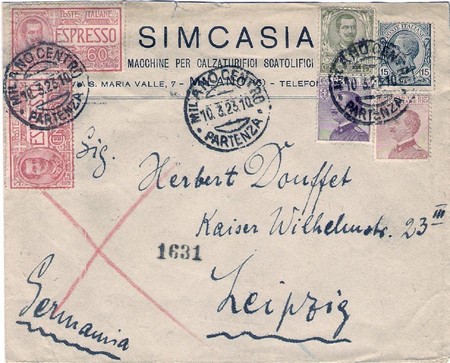 POSTE ITALIANE
ESPRESSO
60
SIMCASIA
MACCHINE PER CALZATURIFICI SCATOLIFICI
VIA S. MARIA VALLE, 7 - TELEFO
MILANO CENTRO
10.3.23.10
* PARTENZA *
MILANO CENTRO
10.3.23.10
* PARTENZA *
MILANO CENTRO
10.3.23.10
PARTENZA
15 15
Sig.
Herbert Douffet
Kaiser Wilhelmstr. 23 III
1631
Leipzig
Germania